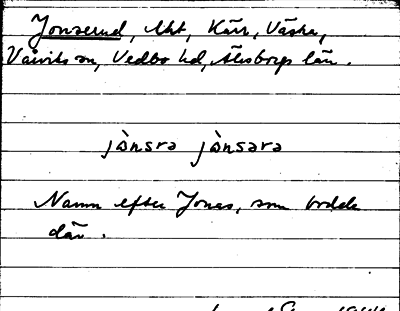 Jonserud, Akt, Kärr, Västra,
Vårviks sn, Vedbo hd, Älvsborgs län.
jònsra jònsara
Namn efter Jonas, som bodde
där.